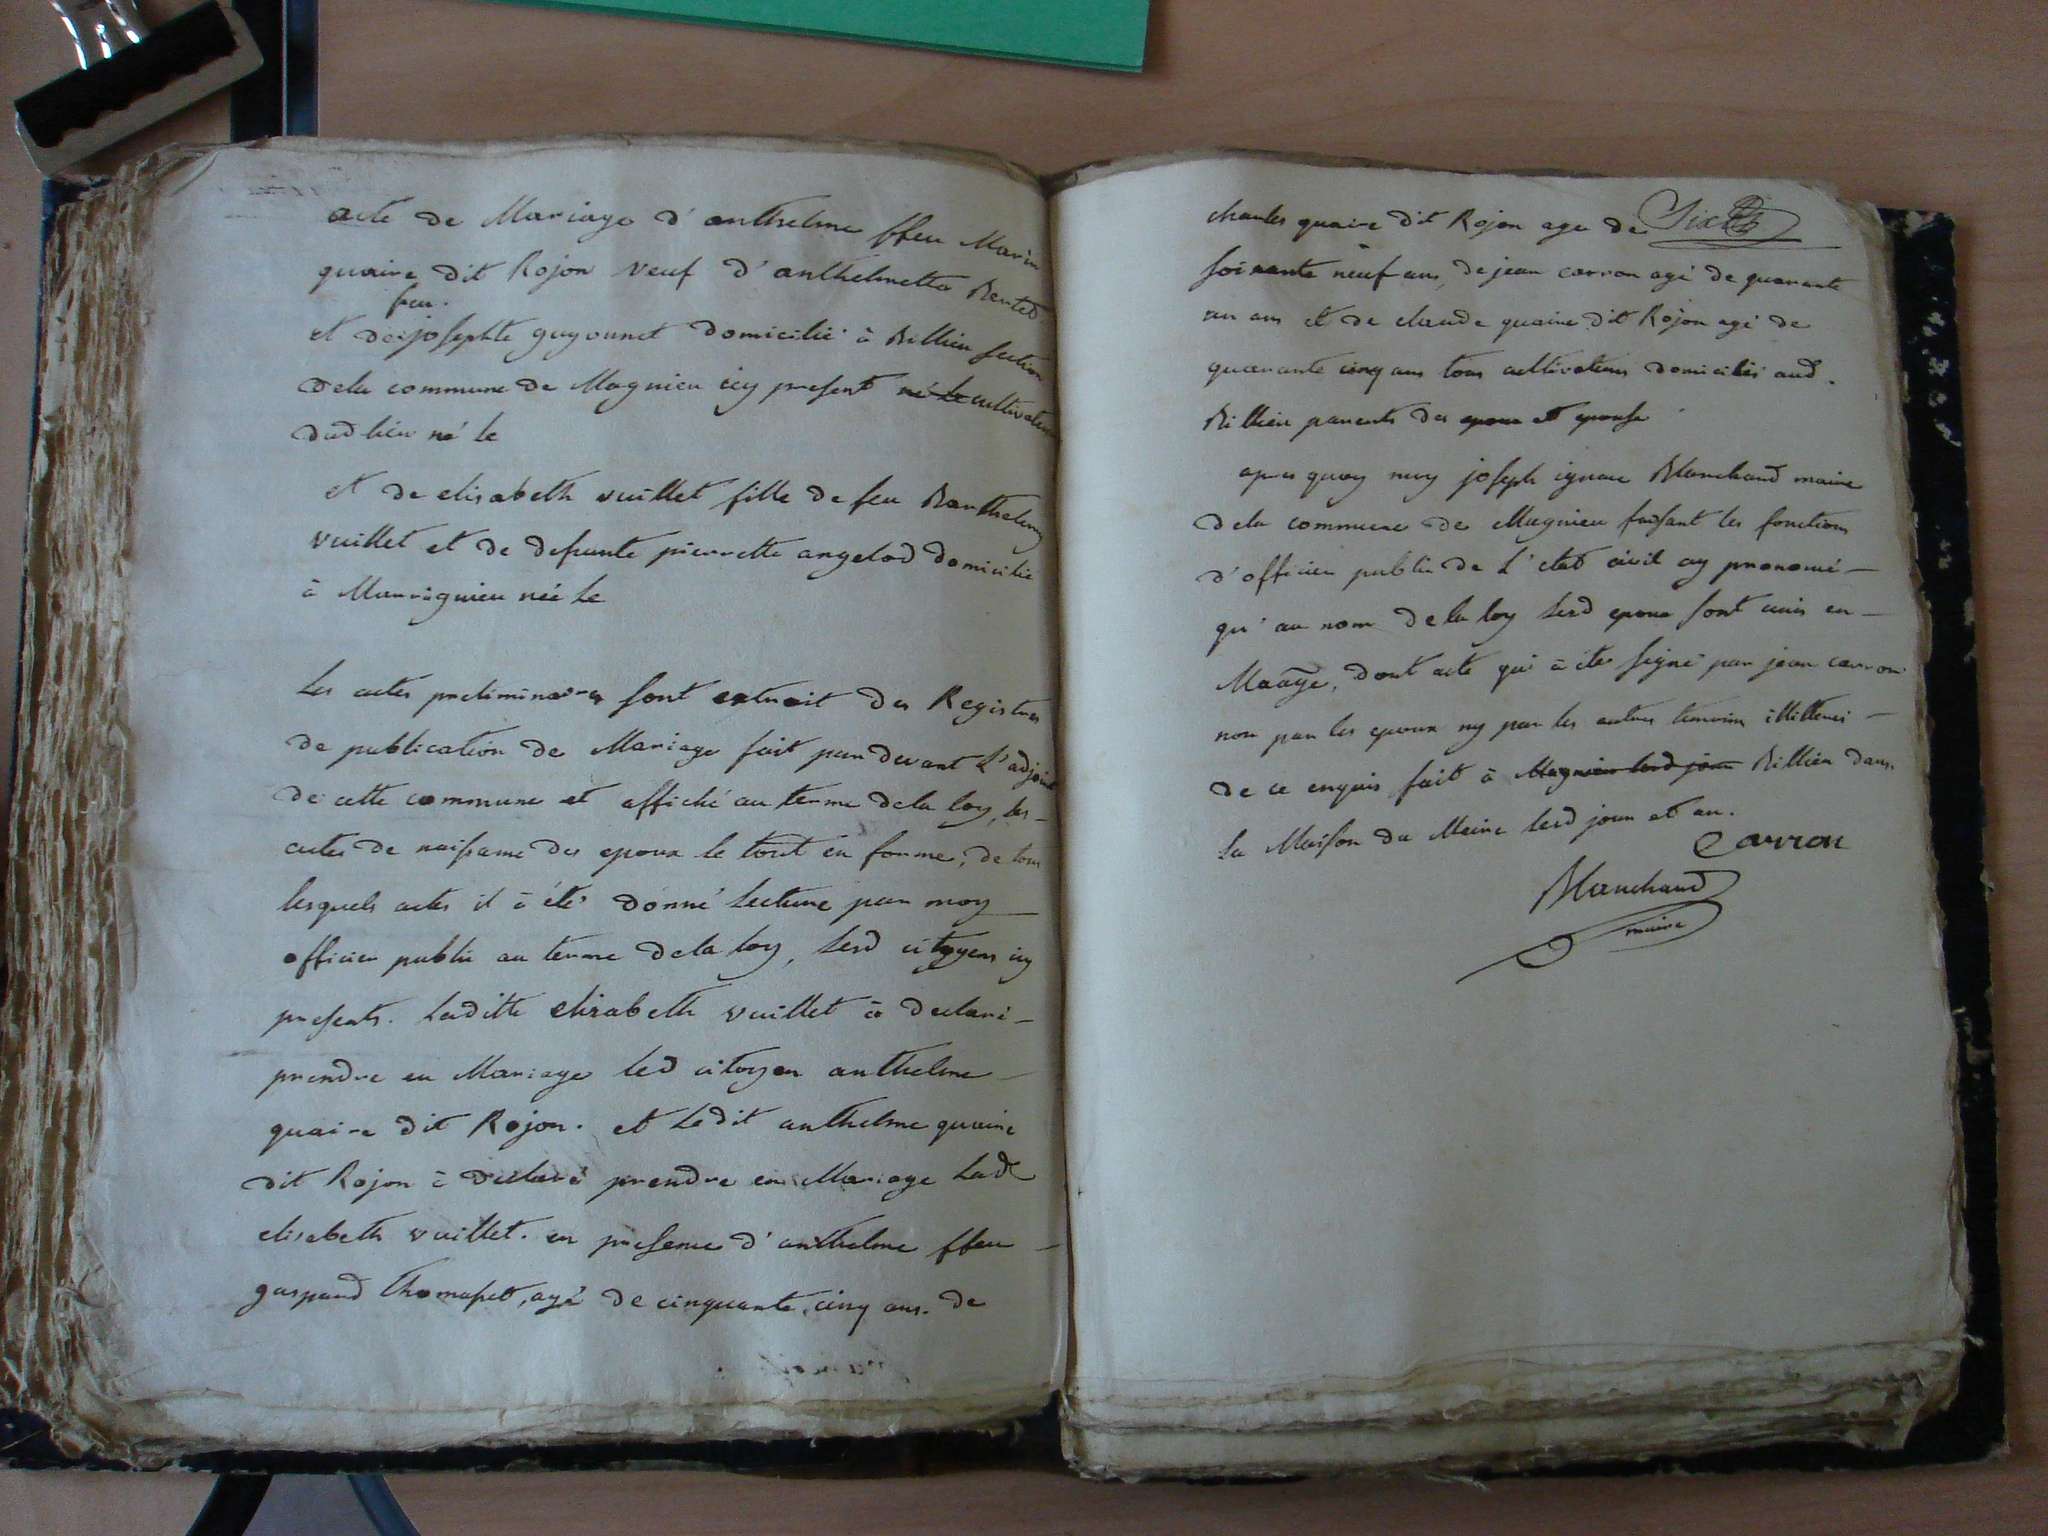 acte de Mariage d'anthelme ffeu Marin
quaire dit Rojon veuf d'anthelmette Bertet
feu
et de josephte guyonnet domicilié à Billieu section
dela commune de Magnieu icy present né Le cultivateur
dud lieu né le
et de elisabeth vuillet fille de feu Barthelemy
vuillet et de defunte pierrette angelod domicilié
à Marrignieu née Le
Les actes preliminaires sont extrait des Registres
de publication de Mariage fait par devant L'adjoint
de cette commune et affiché au terme dela loy, les
actes de naissame des epoux le tout en forme, de tous
lesquels actes il à été donné Lecture par moy
officier public au terme dela loy, Lesd citoyens icy
presents. Laditte elisabeth vuillet à declaré
prendre en Mariage led citoyen anthelme
quaire dit Rojon. et Ledit anthelme quaire
dit Rojon à declaré prendre en Mariage Lade
elisabeth vuillet. en presence d'anthelme ffeu
gaspard Thomasset, agé de cinquante cinq ans. de
charles quaire dit Rojon age de
soixante neuf ans, de jean carron agé de quarante
un ans et de claude quaire dit Rojon agé de
quarante cinq ans tous cultivateurs domiciliés aud.
Billieu parents des epoux et epouse
apres quoy moy joseph ignace Blanchard maire
dela commune de Magnieu faisant les fonctions
d'officier public de L'etat civil ay prononcé
qu'au nom de la loy Lesd epoux sont unis en
Maãge, dont acte qui à eté signé par jean carron
non par les epoux ny par les autres temoins illitteré
de ce enquis fait à Magnieu lesd jour Billieu dans
La Maison du Maire lesd jour et an.
Carron
Blanchard
maire